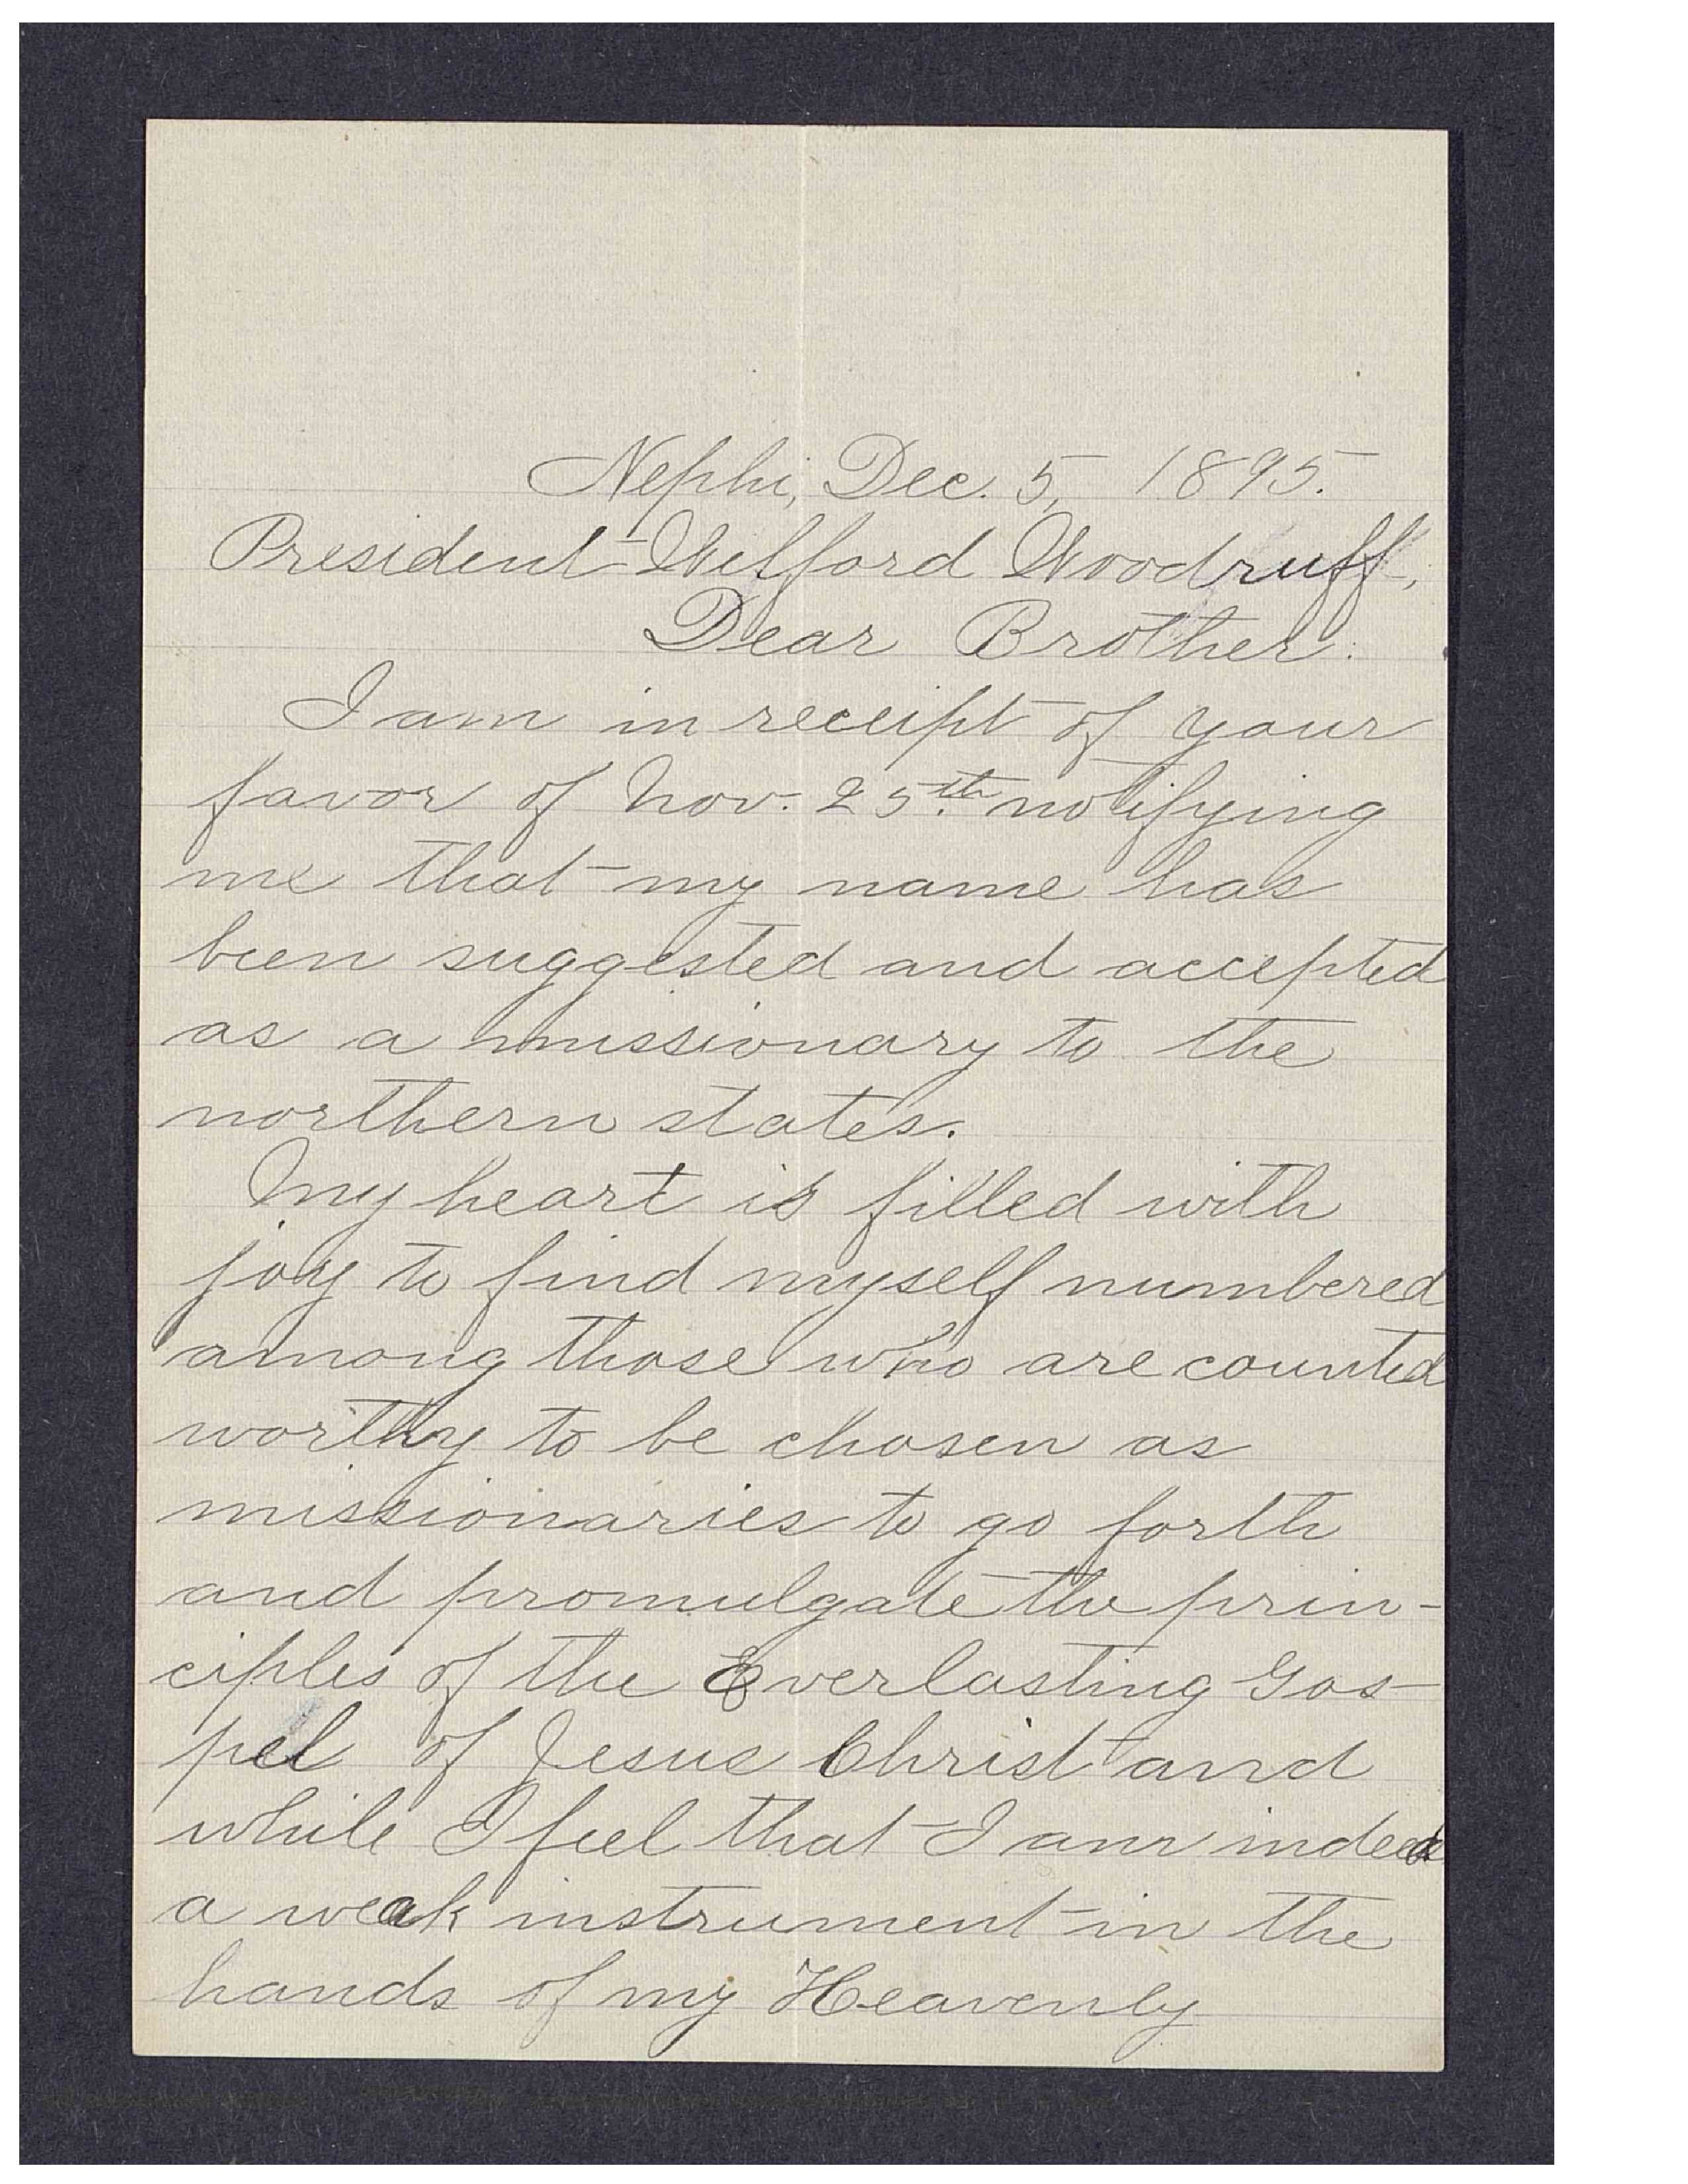 Nephi, Dec. 5, 1895.
President Wilford Woodruff,
Dear Brother:
I am in receipt of your
favor of Nov. 25th. notifying
me that my name has
been suggested and accepted
as a missionary to the
northern states.
My heart is filled with
joy to find myself numbered
among those who are counted
worthy to be chosen as
missionaries to go forth
and promulgate the prin-
ciples of the Everlasting Gos-
pel of Jesus Christ and
while I feel that I am indeed
a weak instrument in the
hands of my Heavenly